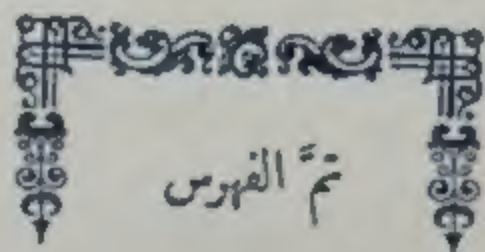 تمَّ الفهرس